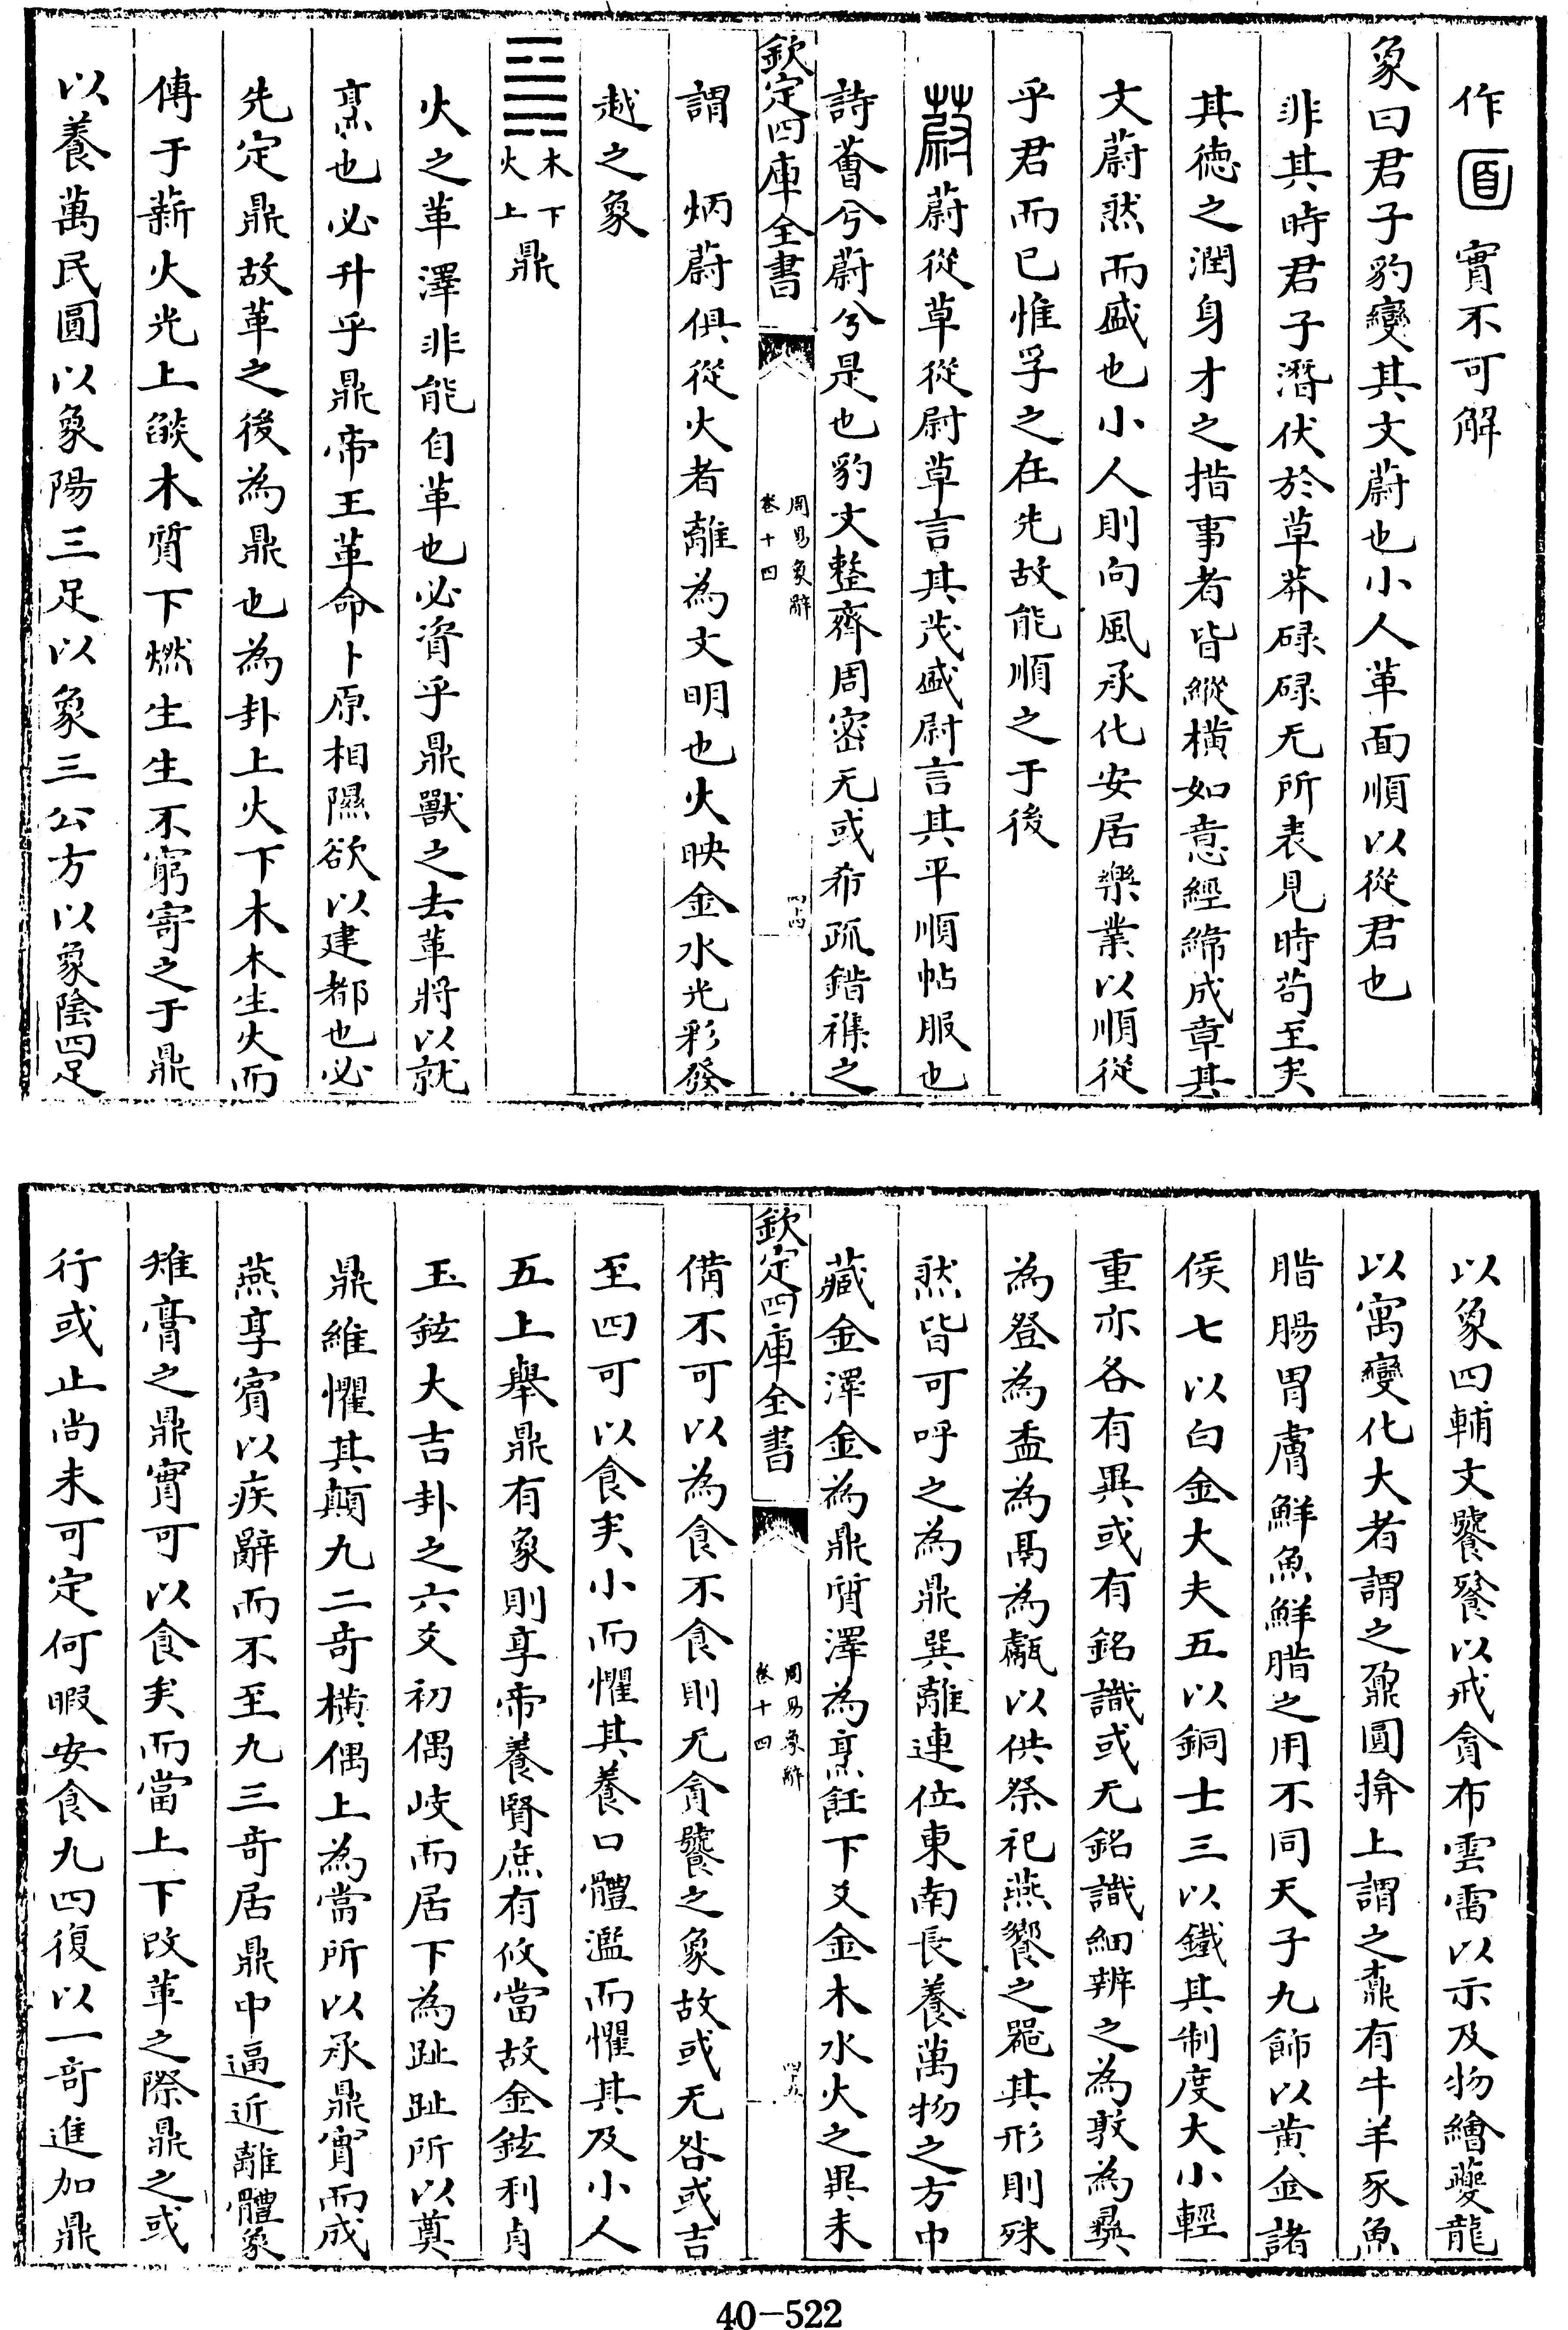 作𦣻實不可解
象曰君子豹變其文蔚也小人革面順以從君也
非其時君子潛伏於草莽碌碌无所表見時苟至矣
其德之潤身才之措事者皆縱橫如意經緯成章其
文蔚然而盛也小人則向風承化安居樂業以順從
乎君而已惟孚之在先故能順之于後
蔚蔚從草從尉草言其茂盛尉言其平順帖服也
詩薈兮蔚兮是也豹文整齊周密无或布疏錯襍之
欽定四庫全書
周易象辭
卷十四
四十四
謂 炳蔚俱從火者離為文明也火映金水光彩發
越之象
䷱木下火上鼎
火之革澤非能自革也必資乎鼎獸之去革將以就
烹也必升乎鼎帝王革命卜原相隰欲以建都也必
先定鼎故革之後為鼎也為卦上火下木木生火而
傳于薪火光上燄木質下燃生生不窮寄之于鼎
以養萬民圓以象陽三足以象三公方以象陰四足
以象四輔文饕餮以戒貪布雲雷以示及物繪夔龍
以寓變化大者謂之鼐圓揜上謂之鼒有牛羊豕魚
腊腸胃膚鮮魚鮮腊之用不同天子九飾以黄金諸
侯七以白金大夫五以銅士三以鐵其制度大小輕
重亦各有異或有銘識或无銘識細辨之為敦為彞
為登為盉為鬲為甗以供祭祀燕饗之噐其形則殊
然皆可呼之為鼎巽離連位東南長養萬物之方中
藏金澤金為鼎質澤為烹飪下爻金木水火之畢未
欽定四庫全書
周易象辭
卷十四
四十五
備不可以為食不食則无貪饕之象故或无咎或吉
至四可以食矣小而懼其養口體濫而懼其及小人
五上舉鼎有象則享帝養賢庶有攸當故金鉉利貞
玉鉉大吉卦之六爻初偶岐而居下為趾趾所以奠
鼎維懼其顛九二奇横偶上為當所以承鼎實而成
燕享賓以疾辭而不至九三奇居鼎中逼近離體象
雉膏之鼎實可以食矣而當上下改革之際鼎之或
行或止尚未可定何暇安食九四復以一奇進加鼎
40-522